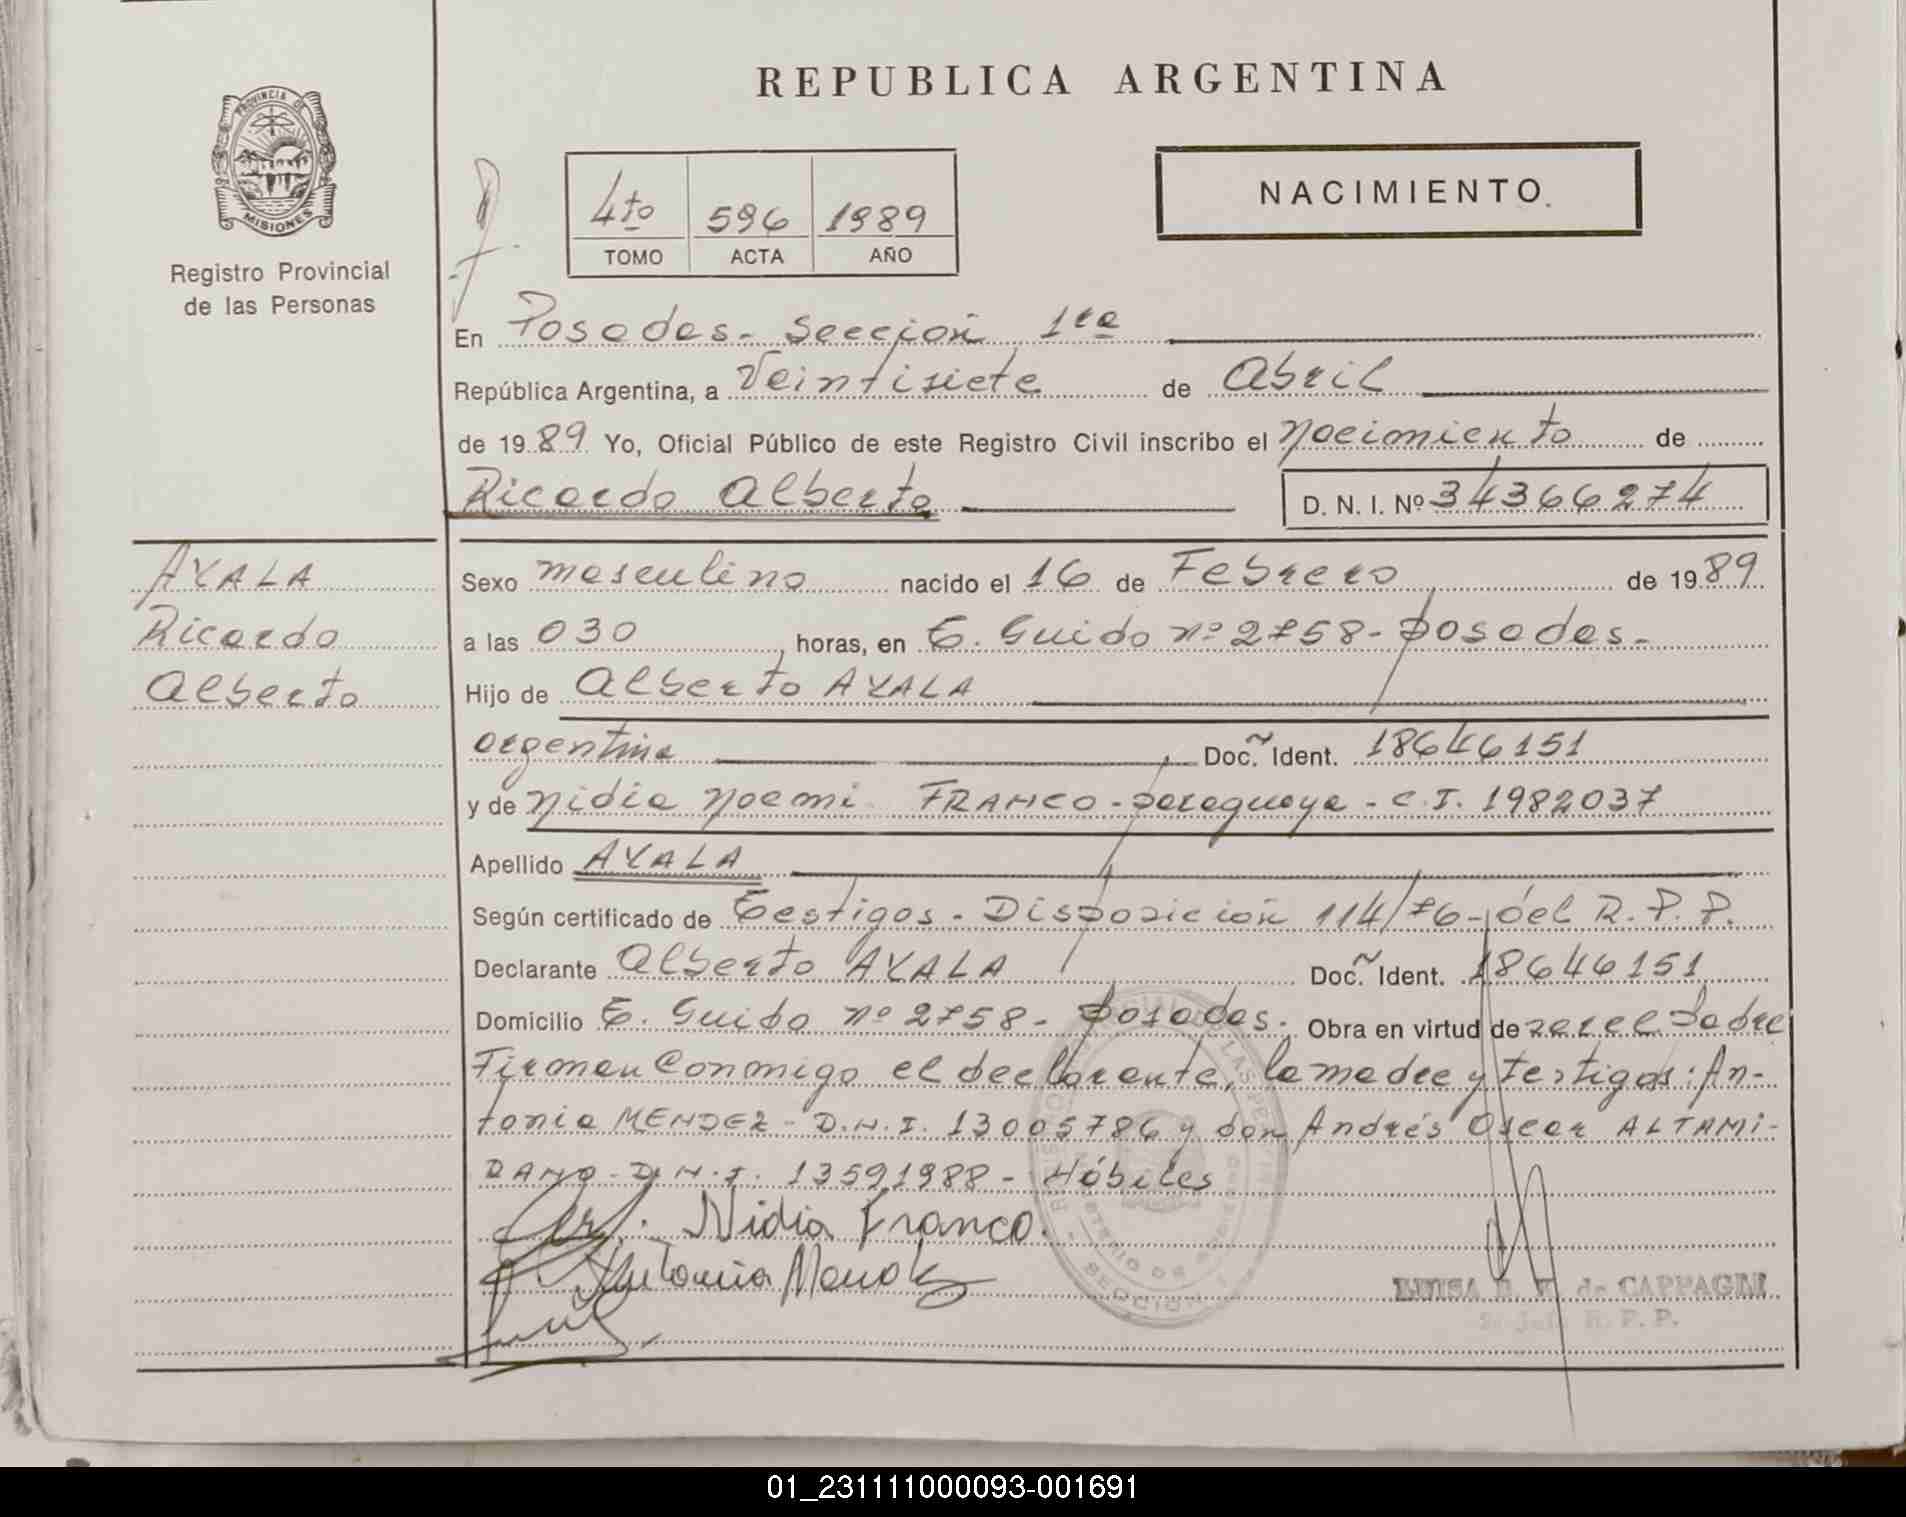 REPUBLICA ARGENTINA
PROVINCIA DE
MISIONES
Registro Provincial
de las Personas
4to 596 1989
TOMO ACTA AÑO
NACIMIENTO.
En Posadas - Sección 1ra
República Argentina, a Veintisiete de Abril
de 1989 Yo, Oficial Público de este Registro Civil inscribo el nacimiento de
Ricardo Alberto D. N. I. Nº 34366274
AYALA
Ricardo
Alberto
Sexo masculino nacido el 16 de Febrero de 1989
a las 030 horas, en E. Guido nº 2758 - Posadas -
Hijo de Alberto AYALA
argentina Doc. Ident. 18646151
y de Nidia Noemi FRANCO - paraguaya - C.I. 1982037
Apellido AYALA
Según certificado de Testigos - Disposición 114/76 - del R.P.P.
Declarante Alberto AYALA Doc. Ident. 18646151
Domicilio E. Guido nº 2758 - Posadas. Obra en virtud de ser el Padre
Firman Conmigo el declarante, la madre y testigos: An-
tonia MENDEZ - D.N.I. 13005786 y don Andrés Oscar ALTAMI-
RANO - D.N.I. 13591988 - Hábiles
Nidia Franco.
Antonia Mendez
SECCION 1
LUISA de CAPPAGLI
R. P. P.
01_231111000093-001691